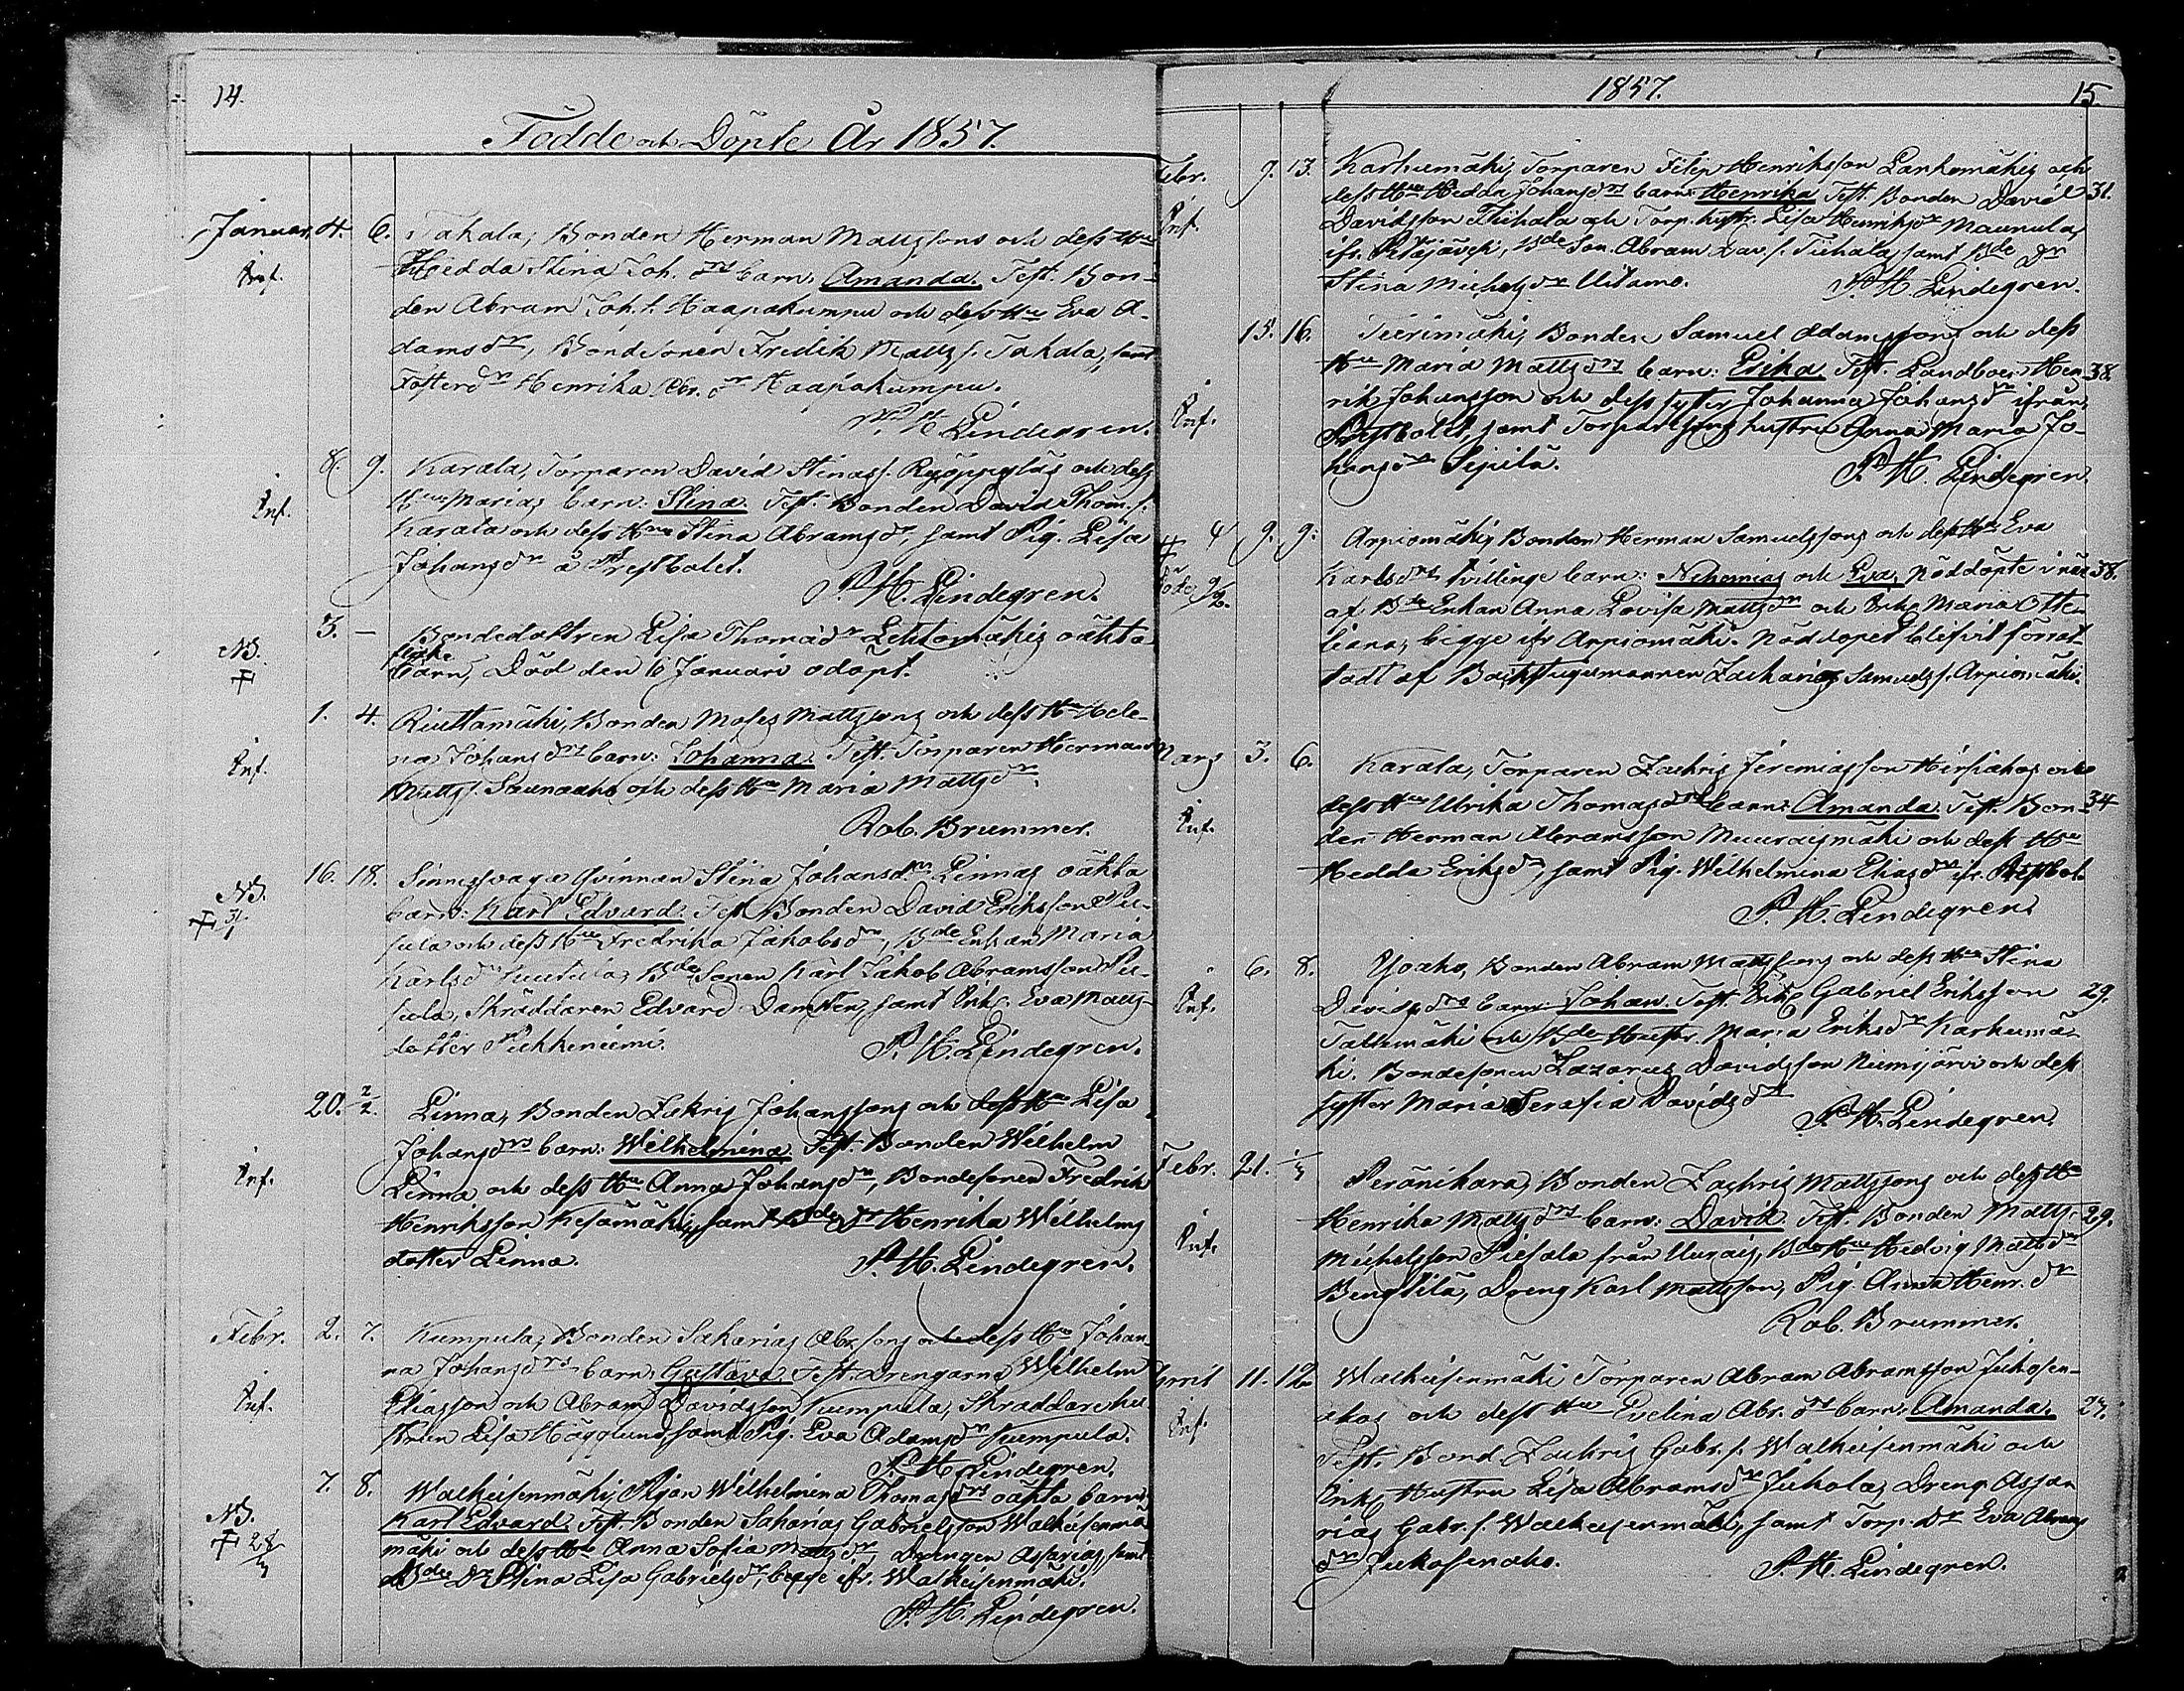 14.
Födde och Döpte År 1857.
Januar. 4. 6. Takala, Bonden Herman Mattssons och dess Hu
Inf. Hedda Stina Joh. drs barn: Amanda. Test. Bon-
den Abram Joh. s. Haapakumpu och dess Hu Eva A-
damsdr, Bondsonen Fredik Matts s. Takala, samt
Fosterdr Henrika Abr. dr Haapakumpu.
P. H. Lindegren.
8. 9. Karala, Torparen David Stinas s. och dess
Inf. Hu Marias barn: Stina. Test. Bonden David Thom. s.
Karala och dess Hu Stina Abramsdr, samt Pig. Lisa
Johansdr å Prestbolet.
P. H. Lindegren.
3. — Bondedottren Lisa Thomædr Lehtomäkis oäkta
NB. flicke
barn, Död den 6 Januari odöpt.
1. 4. Riuttamäki, Bonden Moses Mattssons och dess Hu Hele-
Inf. na Johansdrs barn: Johanna. Test. Torparen Herman
Matts s. Saunaaho och dess Hu Maria Mattsdr.
Rob. Brummer.
16. 18. Sinnessvaga qvinnan Stina Johansdr Linnas oäkta
NB. barn: Karl Edvard. Test. Bonden David Eriksson
31/1 och dess Hu Fredrika Jakobsdr, Bde Enkan Maria
Karlsdr Bde Sonen Karl Jakob Abramsson
Skräddaren Edvard Damsten, samt Enk. Eva Matts-
dotter Pekkeniemi. P. H. Lindegren.
20. 2/2. Linna, Bonden Zakris Johanssons och dess Hu Lisa
Johansdrs barn: Wilhelmina. Test. Bonden Wilhelm
Inf. Linna och dess Hu Anna Johansdr, Bondesonen Fredrik
Henriksson Kesämäki, samt Bde dr Henrika Wilhelms
dotter Linna. P. H. Lindegren.
Febr. 2. 7. Kumpula, Bonden Sakarias Abr. sons och dess Hu Johan-
na Johansdrs barn: Gustava. Test. Drengarne Wilhelm
Inf. Eliasson och Abram Davidsson Kumpula, Skräddarehu-
strun Lisa Hägglund, samt Pig. Eva Adamsdr Kumpula.
P. H. Lindegren.
7. 8. Walkeisenmäki, Pigan Wilhelmina Thomasdrs oäkta barn:
NB. Karl Edvard. Test. Bonden Sakarias Gabrielsson Walkeisenmä
mäki och dess Hu Anna Sofia Mattsdr, Drengen Assarias, samt
Bde Dr Stina Lisa Gabrielsdr, begge ifr. Walkeisenmäki.
P. H. Lindegren.
1857. 15
Febr. 9. 13. Karhumäki, Torparen Filip Henriksson och
Inf. dess Hu Hedda Johansdrs barn: Henrika. Test. Bonden David 31.
Davidsson Tiihala och Torp. hustr. Lisa Henriksdr Maunula,
ifr. Petäjävesi, Bde Son. Abram Dav. s. Tiihala, samt Bde Dr
Stina Michelsdr Uitamo. P. H. Lindegren.
15. 16. Tiirimäki, Bonden Samuel Adamssons och dess
Hu Maria Mattsdrs barn: Erika. Test. Landboen Hen- 38.
Inf. rik Johansson och dess syster Johanna Johansdr ifrån
Prestbolet, samt Torparesons hustru Anna Maria Jo-
hansdr Sipilä. P. H. Lindegren.
9. 9. Arpiomäki, Bonden Herman Samuelssons och dess Hu Eva
Karlsdrs tvillinge barn: Nehemias och Eva. Nöddöpte i när 38.
af Bde Enkan Anna Lovisa Mattsdr och Enk. Maria Otte-
liana, begge ifr. Arpiomäki. Nöddopet blifvit förrät-
tadt af Backstugumannen Zacharias Samuels s. Arpiomäki.
Mars 3. 6. Karala, Torparen Zachris Jeremiasson Hirsiahos och
dess Hu Ulrika Thomasdrs barn: Amanda. Test. Bon- 34
Inf. den Herman Abramsson Muuraismäki och dess Hu
Hedda Eriksdr, samt Pig. Wilhelmina Eliasdr ifr. Prestbol.
P. H. Lindegren.
6. 8. Yoaho, Bonden Abram Mattssons och dess Hu Stina
Inf. Davidsdrs barn: Johan. Test. Enk. Gabriel Eriksson 29.
och Bde Hustr. Maria Eriksdr Karhumä-
ki. Bondesonen Lazarus Davidsson Niemijärvi och dess
syster Maria Serafia Davidsdr
P. H. Lindegren.
Febr. 21. 1/3 Peränikara, Bonden Zachris Mattssons och dess Hu
Henrika Mattsdrs barn: David. Test. Bonden Matts 29.
Inf. Michelsson Piesala från Uurais, Bde Hu Hedvig Mattsdr
Bengtilä, Dreng Karl Mattsson, Pig. Anna Henr. dr
Rob. Brummer.
April 11. 12 Walkeisenmäki Torparen Abram Abramsson Jukosen-
Inf. ahos och dess Hu Evelina Abr. drs barn: Amanda. 27.
Test. Bond. Zachris Gabr. s. Walkeisenmäki och
Enk. Hustru Lisa Abramsdr Jukola, Dreng Assa
rias Gabr. s. Walkeisenmäki, samt Torp. dr Eva Abrams
dr Jukosenaho. P. H. Lindegren.